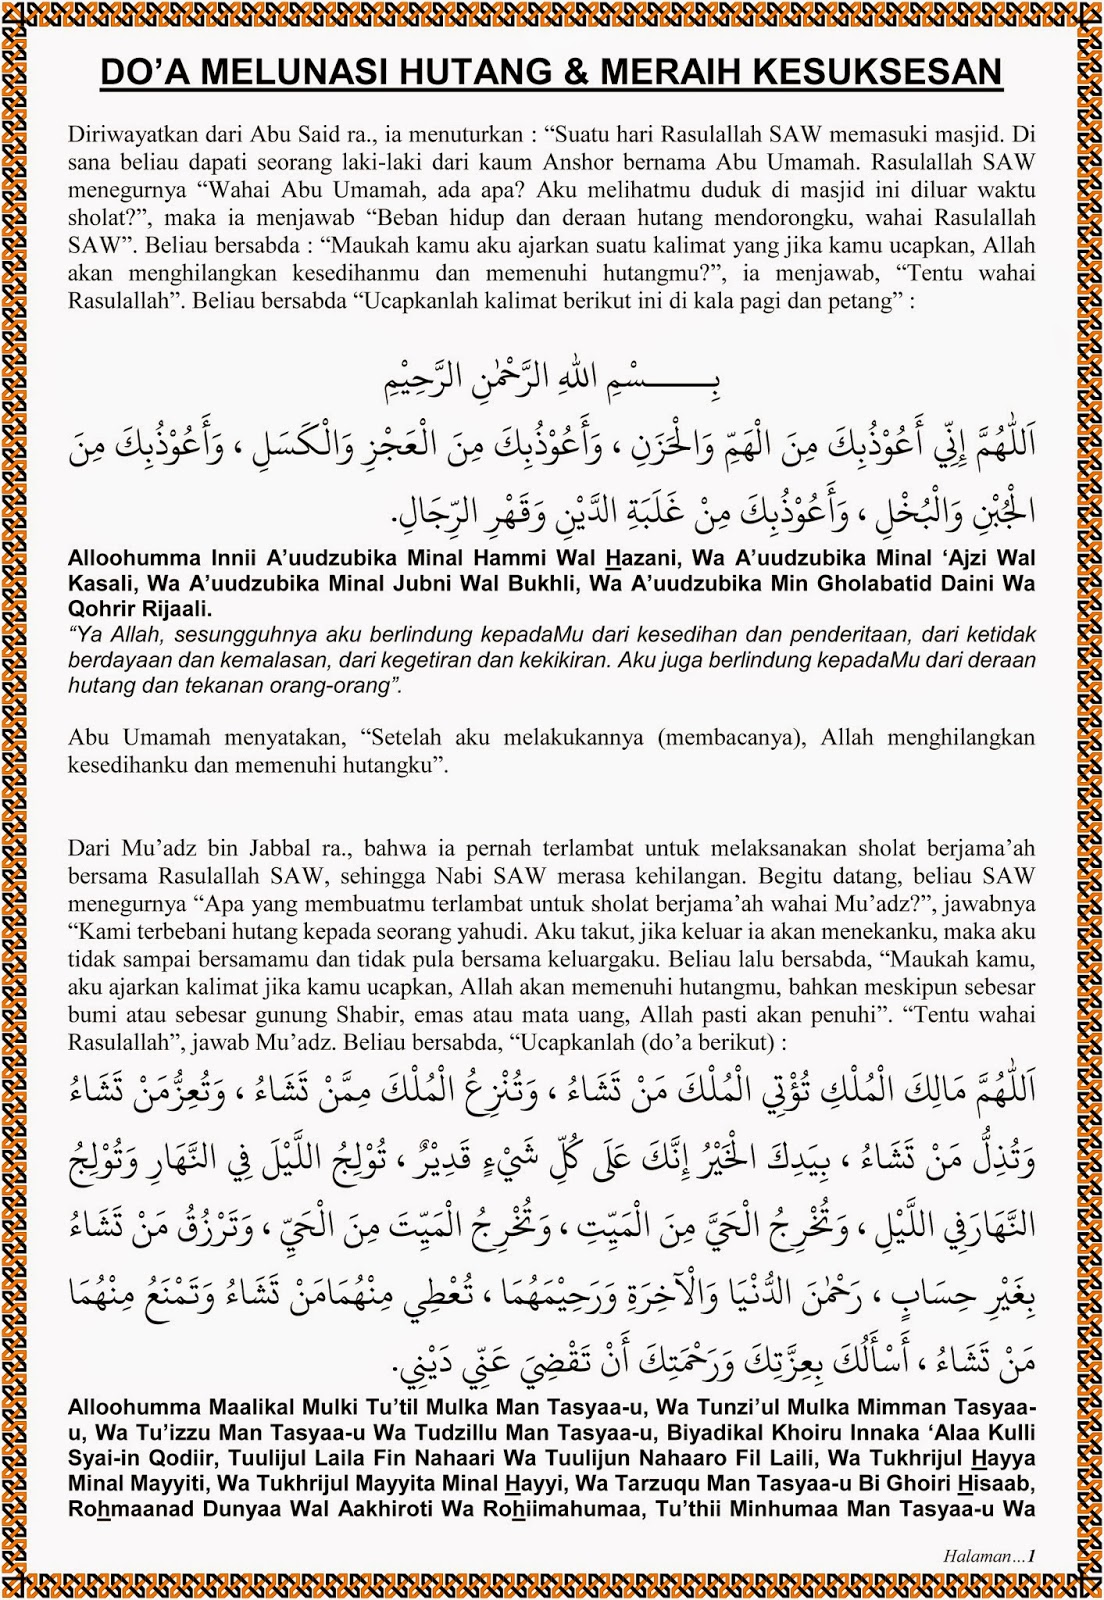 DO’A MELUNASI HUTANG & MERAIH KESUKSESAN
Diriwayatkan dari Abu Said ra., ia menuturkan : “Suatu hari Rasulallah SAW memasuki masjid. Di
sana beliau dapati seorang laki-laki dari kaum Anshor bernama Abu Umamah. Rasulallah SAW
menegurnya “Wahai Abu Umamah, ada apa? Aku melihatmu duduk di masjid ini diluar waktu
sholat?”, maka ia menjawab “Beban hidup dan deraan hutang mendorongku, wahai Rasulallah
SAW”. Beliau bersabda : “Maukah kamu aku ajarkan suatu kalimat yang jika kamu ucapkan, Allah
akan menghilangkan kesedihanmu dan memenuhi hutangmu?”, ia menjawab, “Tentu wahai
Rasulallah”. Beliau bersabda “Ucapkanlah kalimat berikut ini di kala pagi dan petang” :
بِـــــــسْمِ اللهِ الرَّحْمٰنِ الرَّحِيْمِ
اَللّٰهُمَّ إِنِّي أَعُوْذُبِكَ مِنَ الْهَمِّ وَالْحَزَنِ ، وَأَعُوْذُبِكَ مِنَ الْعَجْزِ وَالْكَسَلِ ، وَأَعُوْذُبِكَ مِنَ
الْجُبْنِ وَالْبُخْلِ ، وَأَعُوْذُبِكَ مِنْ غَلَبَةِ الدَّيْنِ وَقَهْرِ الرِّجَالِ.
Alloohumma Innii A’uudzubika Minal Hammi Wal Hazani, Wa A’uudzubika Minal ‘Ajzi Wal
Kasali, Wa A’uudzubika Minal Jubni Wal Bukhli, Wa A’uudzubika Min Gholabatid Daini Wa
Qohrir Rijaali.
“Ya Allah, sesungguhnya aku berlindung kepadaMu dari kesedihan dan penderitaan, dari ketidak
berdayaan dan kemalasan, dari kegetiran dan kekikiran. Aku juga berlindung kepadaMu dari deraan
hutang dan tekanan orang-orang”.
Abu Umamah menyatakan, “Setelah aku melakukannya (membacanya), Allah menghilangkan
kesedihanku dan memenuhi hutangku”.
Dari Mu’adz bin Jabbal ra., bahwa ia pernah terlambat untuk melaksanakan sholat berjama’ah
bersama Rasulallah SAW, sehingga Nabi SAW merasa kehilangan. Begitu datang, beliau SAW
menegurnya “Apa yang membuatmu terlambat untuk sholat berjama’ah wahai Mu’adz?”, jawabnya
“Kami terbebani hutang kepada seorang yahudi. Aku takut, jika keluar ia akan menekanku, maka aku
tidak sampai bersamamu dan tidak pula bersama keluargaku. Beliau lalu bersabda, “Maukah kamu,
aku ajarkan kalimat jika kamu ucapkan, Allah akan memenuhi hutangmu, bahkan meskipun sebesar
bumi atau sebesar gunung Shabir, emas atau mata uang, Allah pasti akan penuhi”. “Tentu wahai
Rasulallah”, jawab Mu’adz. Beliau bersabda, “Ucapkanlah (do’a berikut) :
اَللّٰهُمَّ مَالِكَ الْمُلْكِ تُؤْتِي الْمُلْكَ مَنْ تَشَاءُ ، وَتُنْزِعُ الْمُلْكَ مِمَّنْ تَشَاءُ ، وَتُعِزُّمَنْ تَشَاءُ
وَتُذِلُّ مَنْ تَشَاءُ ، بِيَدِكَ الْخَيْرُ إِنَّكَ عَلَى كُلِّ شَيْءٍ قَدِيْرٌ ، تُوْلِجُ اللَّيْلَ فِي النَّهَارِ وَتُوْلِجُ
النَّهَارَفِي اللَّيْلِ ، وَتُخْرِجُ الْحَيَّ مِنَ الْمَيِّتِ ، وَتُخْرِجُ الْمَيِّتَ مِنَ الْحَيِّ ، وَتَرْزُقُ مَنْ تَشَاءُ
بِغَيْرِ حِسَابٍ ، رَحْمٰنَ الدُّنْيَا وَالْآخِرَةِ وَرَحِيْمَهُمَا ، تُعْطِي مِنْهُمَامَنْ تَشَاءُ وَتَمْنَعُ مِنْهُمَا
مَنْ تَشَاءُ ، أَسْأَلُكَ بِعِزَّتِكَ وَرَحْمَتِكَ أَنْ تَقْضِيَ عَنِّي دَيْنِي.
Alloohumma Maalikal Mulki Tu’til Mulka Man Tasyaa-u, Wa Tunzi’ul Mulka Mimman Tasyaa-
u, Wa Tu’izzu Man Tasyaa-u Wa Tudzillu Man Tasyaa-u, Biyadikal Khoiru Innaka ‘Alaa Kulli
Syai-in Qodiir, Tuulijul Laila Fin Nahaari Wa Tuulijun Nahaaro Fil Laili, Wa Tukhrijul Hayya
Minal Mayyiti, Wa Tukhrijul Mayyita Minal Hayyi, Wa Tarzuqu Man Tasyaa-u Bi Ghoiri Hisaab,
Rohmaanad Dunyaa Wal Aakhiroti Wa Rohiimahumaa, Tu’thii Minhumaa Man Tasyaa-u Wa
Halaman…1